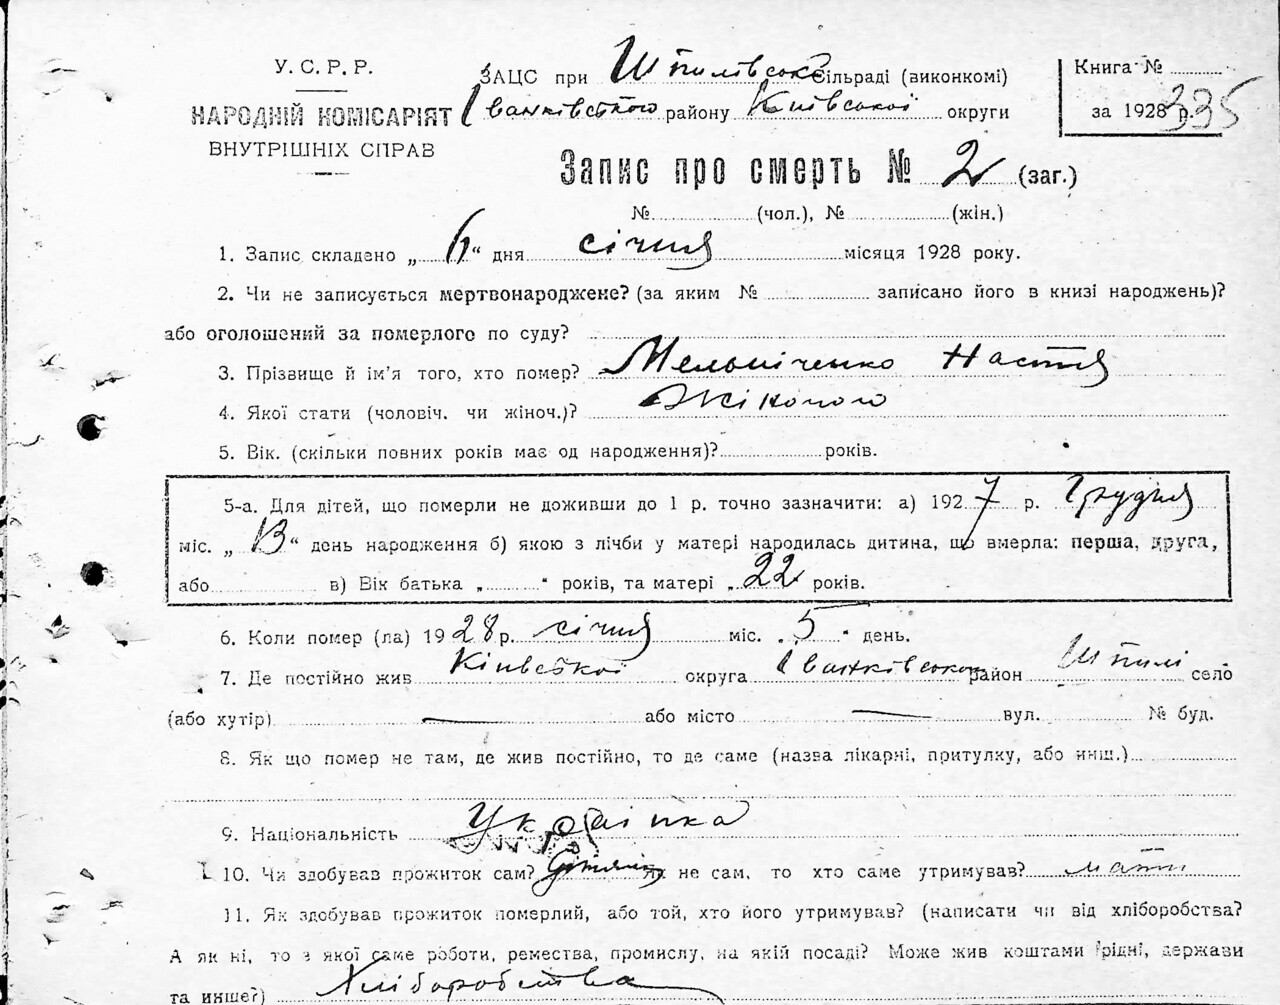 У. С. Р. Р.
НАРОДНІЙ КОМІСАРІЯТ
ВНУТРІШНІХ СПРАВ
ЗАЦС при Шпилівській сільраді (виконкомі)
Іванківського району Київської округи
Книга №
за 1928 р. 335
Запис про смерть № 2 (заг.)
№ (чол.), № (жін.)
1. Запис складено „ 6 “ дня січня місяця 1928 року.
2. Чи не записується мертвонароджене? (за яким № записано його в книзі народжень)?
або оголошений за померлого по суду?
3. Прізвище й ім'я того, хто помер? Мельніченко Настя
4. Якої стати (чоловіч. чи жіноч.)? Жіночого
5. Вік. (скільки повних років має од народження)? років.
5-а. Для дітей, що померли не доживши до 1 р. точно зазначити: а) 1927 р. Грудня
міс. „ 13 “ день народження б) якою з лічби у матері народилась дитина, що вмерла: перша, друга,
або в) Вік батька „ “ років, та матері „ 22 років.
6. Коли помер (ла) 1928 р. січня міс. „ 5 “ день.
7. Де постійно жив Київської округа Іванківського район Шпилі село
(або хутір) — або місто — вул. № буд.
8. Як що помер не там, де жив постійно, то де саме (назва лікарні, притулку, або инш.)
9. Національність Українка
10. Чи здобував прожиток сам? не сам, то хто саме утримував? мати
11. Як здобував прожиток померлий, або той, хто його утримував? (написати чи від хліборобства?
А як ні, то з якої саме роботи, ремества, промислу, на якій посаді? Може жив коштами рідні, держави
та инше?) Хліборобства